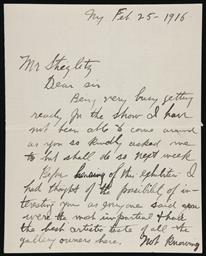 Ny Feb 25 - 1916
Mr Stieglitz
Dear sir
Being very busy getting
ready for the show I have
not been able to come around
as you so kindly asked me
to but shall do so next week
Before hearing of this exhibition I
had thought of the possibility of in-
teresting you as anyone said you
were the most impartial & had
the best artistic taste of all the
gallery owners here. Not knowing